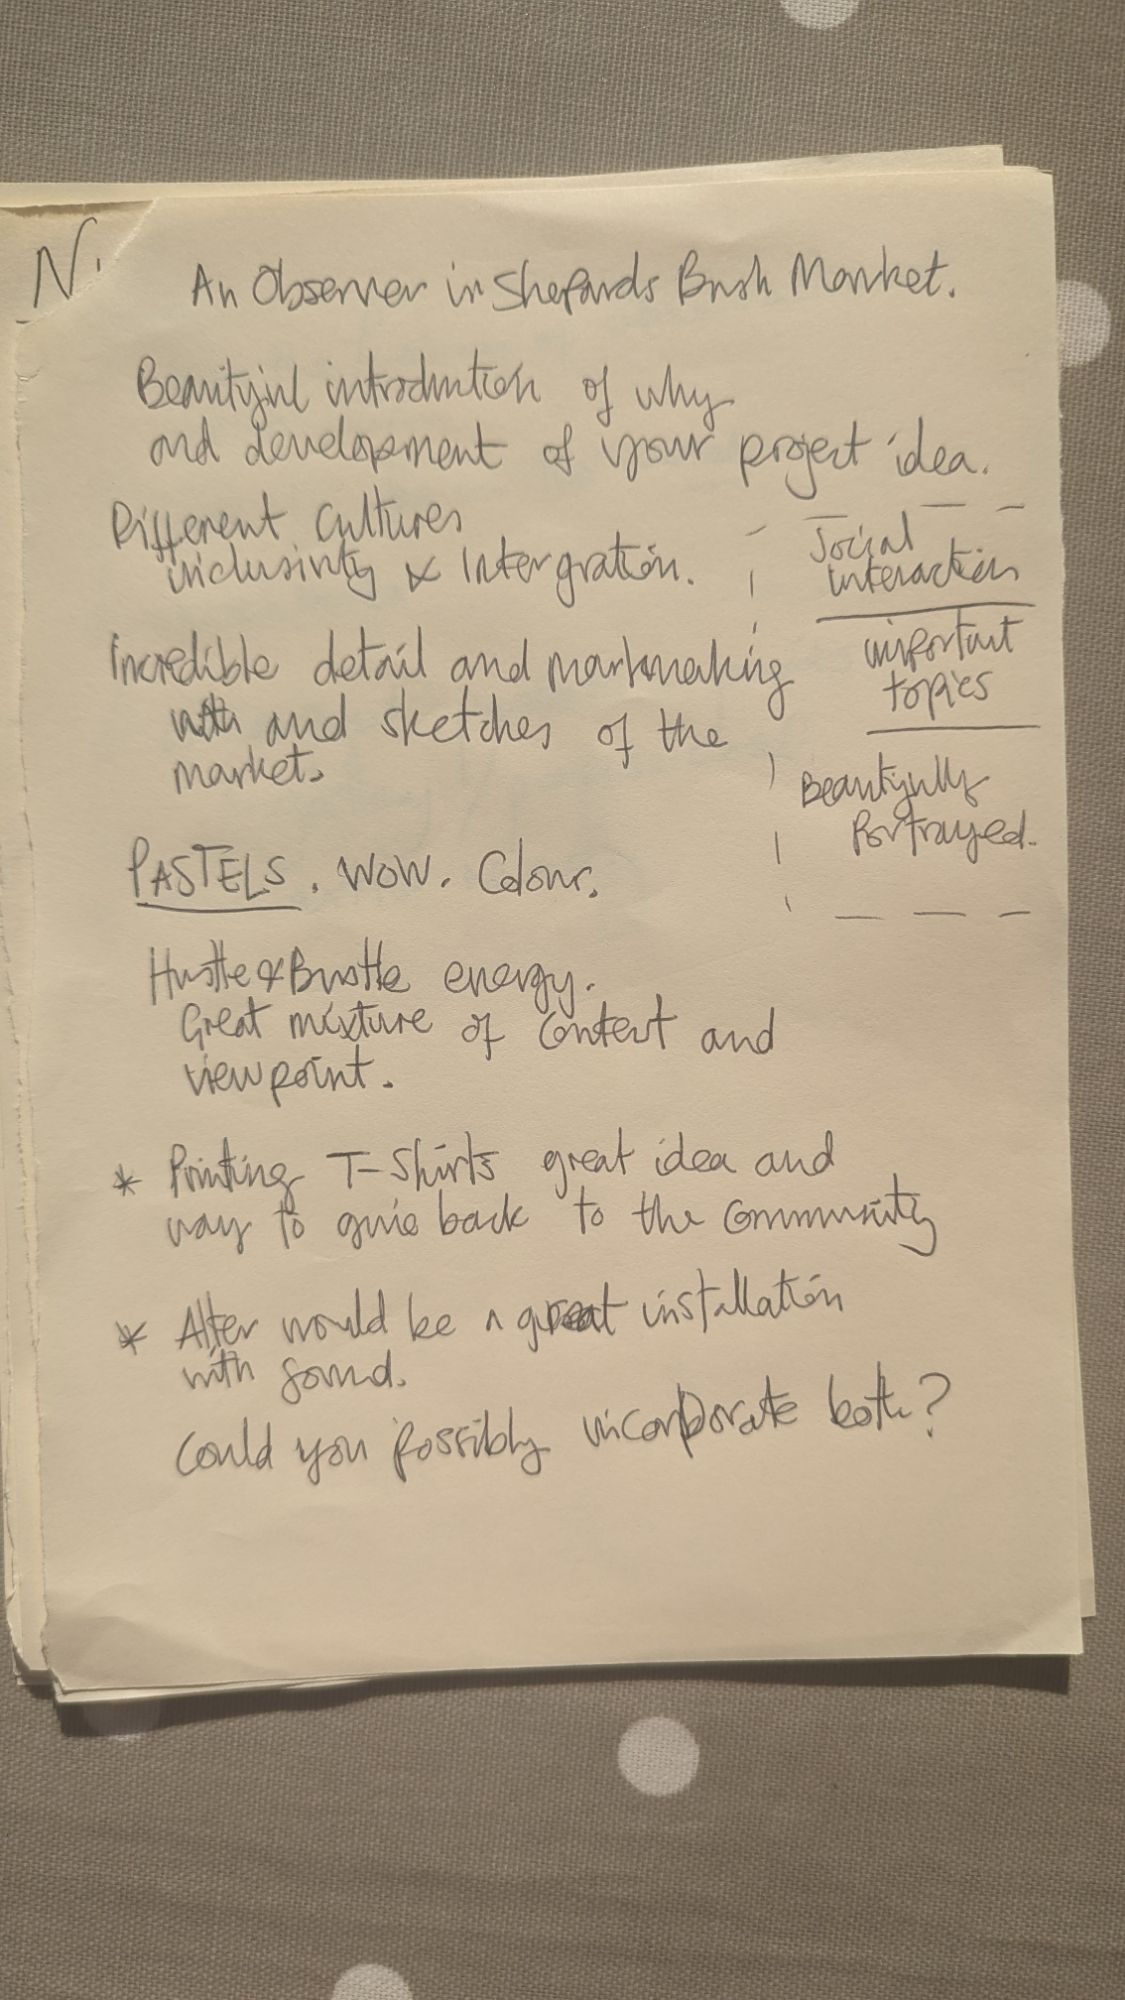 N.
An Observer in Shepards Bush Market.
Beautiful introduction of why
and development of your project idea.
Different Cultures
inclusivity & Intergration.
Social
interaction
important
topics
Beautifully
Portrayed.
Incredible detail and markmaking
with and sketches of the
market.
PASTELS. WOW. Colour.
Hustle & Bustle energy.
Great mixture of context and
viewpoint.
* Printing T-Shirts great idea and
way to give back to the community
* Alter would be a great installation
with sound.
Could you possibly incorporate both?